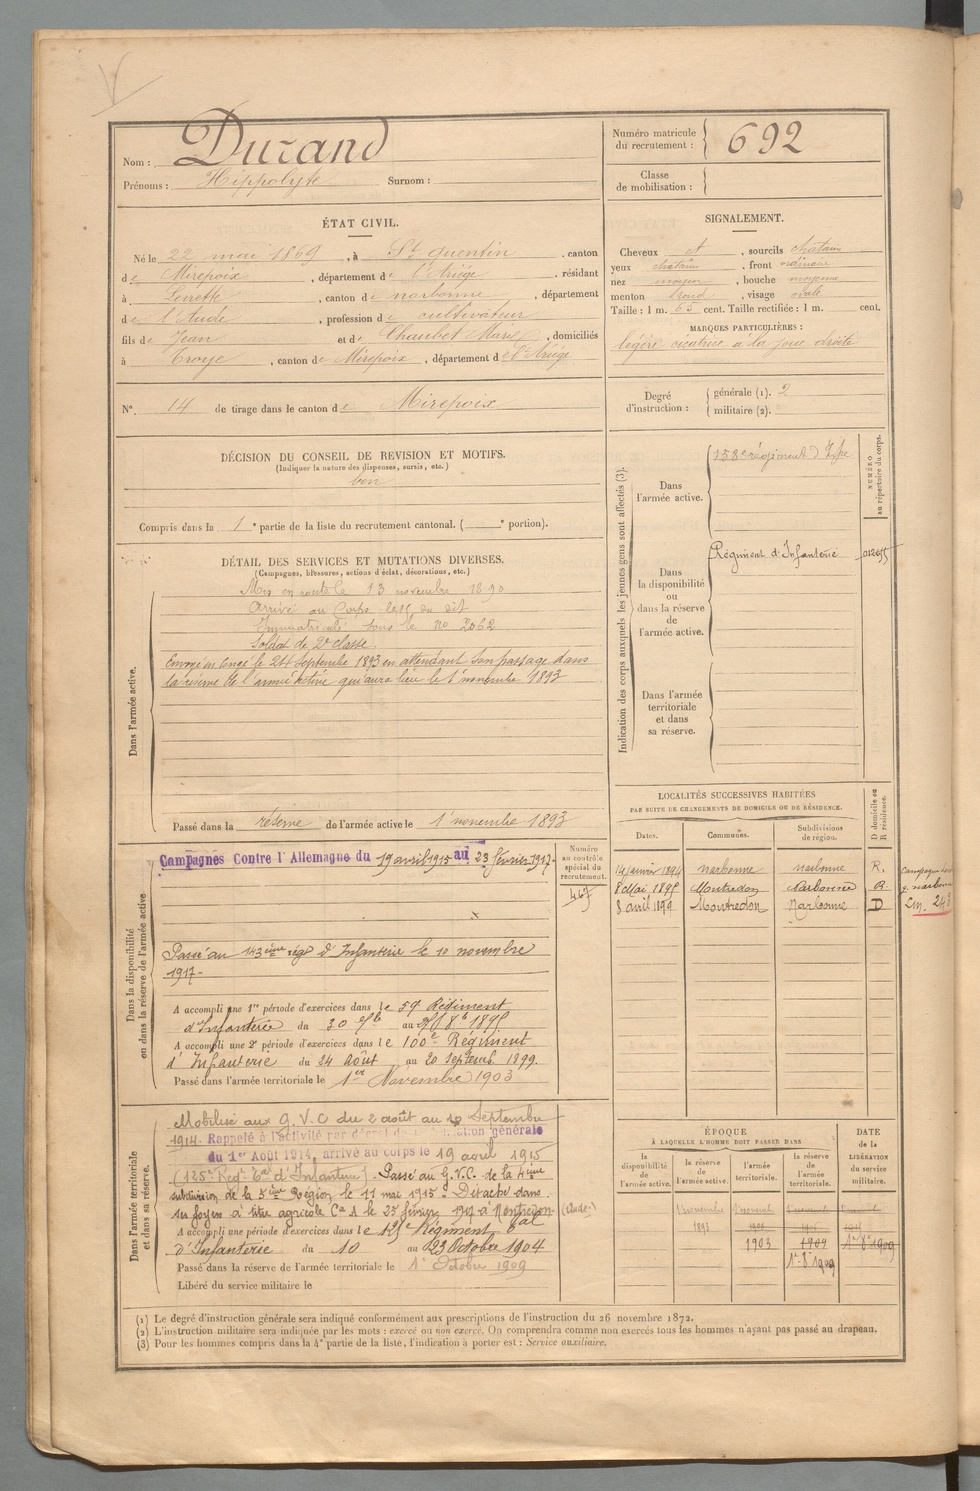 Nom : Durand
Prénoms : Hippolyte Surnom :
Numéro matricule
du recrutement : 692
Classe
de mobilisation :
ÉTAT CIVIL.
Né le 22 mai 1869, à St quentin, canton
de Mirepoix, département de l'Ariège, résidant
à, canton de narbonne, département
de l'Aude, profession de cultivateur
fils de Jean et de Chaubet Marie, domiciliés
à Troye, canton de Mirepoix, département de l'Ariège
N° 14 de tirage dans le canton de Mirepoix
SIGNALEMENT.
Cheveux et, sourcils chatain
yeux chatain, front ordinaire
nez moyen, bouche moyenne
menton rond, visage ovale
Taille : 1 m. 65 cent. Taille rectifiée : 1 m. cent.
MARQUES PARTICULIÈRES :
légère cicatrice à la joue droite
Degré
d'instruction :
générale (1). 2
militaire (2).
DÉCISION DU CONSEIL DE REVISION ET MOTIFS.
(Indiquer la nature des dispenses, sursis, etc.)
bon
Compris dans la 1e partie de la liste du recrutement cantonal. ( e portion).
DÉTAIL DES SERVICES ET MUTATIONS DIVERSES.
(Campagnes, blessures, actions d'éclat, décorations, etc.)
Dans l'armée active.
Mis en route le 13 novembre 1890
Arrivé au Corps le 15 du dit
Immatriculé sous le no 2062
Soldat de 2e classe
Envoyé en congé le 24 Septembre 1893 en attendant son passage dans
la réserve de l'armée active qui aura lieu le 1 novembre 1893
Passé dans la réserve de l'armée active le 1 novembre 1893
Indication des corps auxquels les jeunes gens sont affectés (3).
NUMÉRO
au répertoire du corps.
Dans
l'armée active.
158e régiment d'Ifie
Dans
la disponibilité
ou
dans la réserve
de
l'armée active.
Régiment d'Infanterie
Dans l'armée
territoriale
et dans
sa réserve.
LOCALITÉS SUCCESSIVES HABITÉES
PAR SUITE DE CHANGEMENTS DE DOMICILE OU DE RÉSIDENCE.
D domicile ou
R résidence.
Dates. Communes. Subdivisions
de région.
14 janvier 1894 narbonne narbonne R.
8 Mai 1895 Montredon Narbonne R
8 avril 1899 Montredon Narbonne D
Dans la disponibilité
ou dans la réserve de l'armée active
Numéro
au contrôle
spécial du
recrutement.
467
Campagnes Contre l'Allemagne du 19 avril 1915 au 23 février 1917.
Passé au 143ème régt d'Infanterie le 10 novembre
1917-
A accompli une 1re période d'exercices dans le 59 Régiment
d'Infanterie du 30 7bre au 8b 1895
A accompli une 2e période d'exercices dans le 100e Régiment
d'Infanterie du 24 août au 20 Septemb. 1899.
Passé dans l'armée territoriale le 1er Novembre 1903
Dans l'armée territoriale
et dans sa réserve.
Mobilisé aux G.V.C du 2 août au 10 Septembre
1914. Rappelé à l'activité par décret de mobilisation générale
du 1er Août 1914, arrivé au corps le 19 avril 1915
(125e Regt Tal d'Infanterie). Passé au G.V.C. de la 4ème
subdivision de la 5ème Région le 11 mai 1915. Détaché dans
ses foyers à titre agricole Ce A le 25 février 1917 à Montredon (Aude)
A accompli une période d'exercices dans le 125e Régiment tal
d'Infanterie du 10 au 23 Octobre 1904
Passé dans la réserve de l'armée territoriale le 1 Octobre 1909
Libéré du service militaire le
ÉPOQUE
À LAQUELLE L'HOMME DOIT PASSER DANS
DATE
de la
LIBÉRATION
du service
militaire.
la
disponibilité
de
l'armée active.
la réserve
de
l'armée active.
l'armée
territoriale.
la réserve
de
l'armée
territoriale.
1 novembre
1893
1903
1909
1r 8 1909
(1) Le degré d'instruction générale sera indiqué conformément aux prescriptions de l'instruction du 26 novembre 1872.
(2) L'instruction militaire sera indiquée par les mots : exercé ou non exercé. On comprendra comme non exercés tous les hommes n'ayant pas passé au drapeau.
(3) Pour les hommes compris dans la 4e partie de la liste, l'indication à porter est : Service auxiliaire.